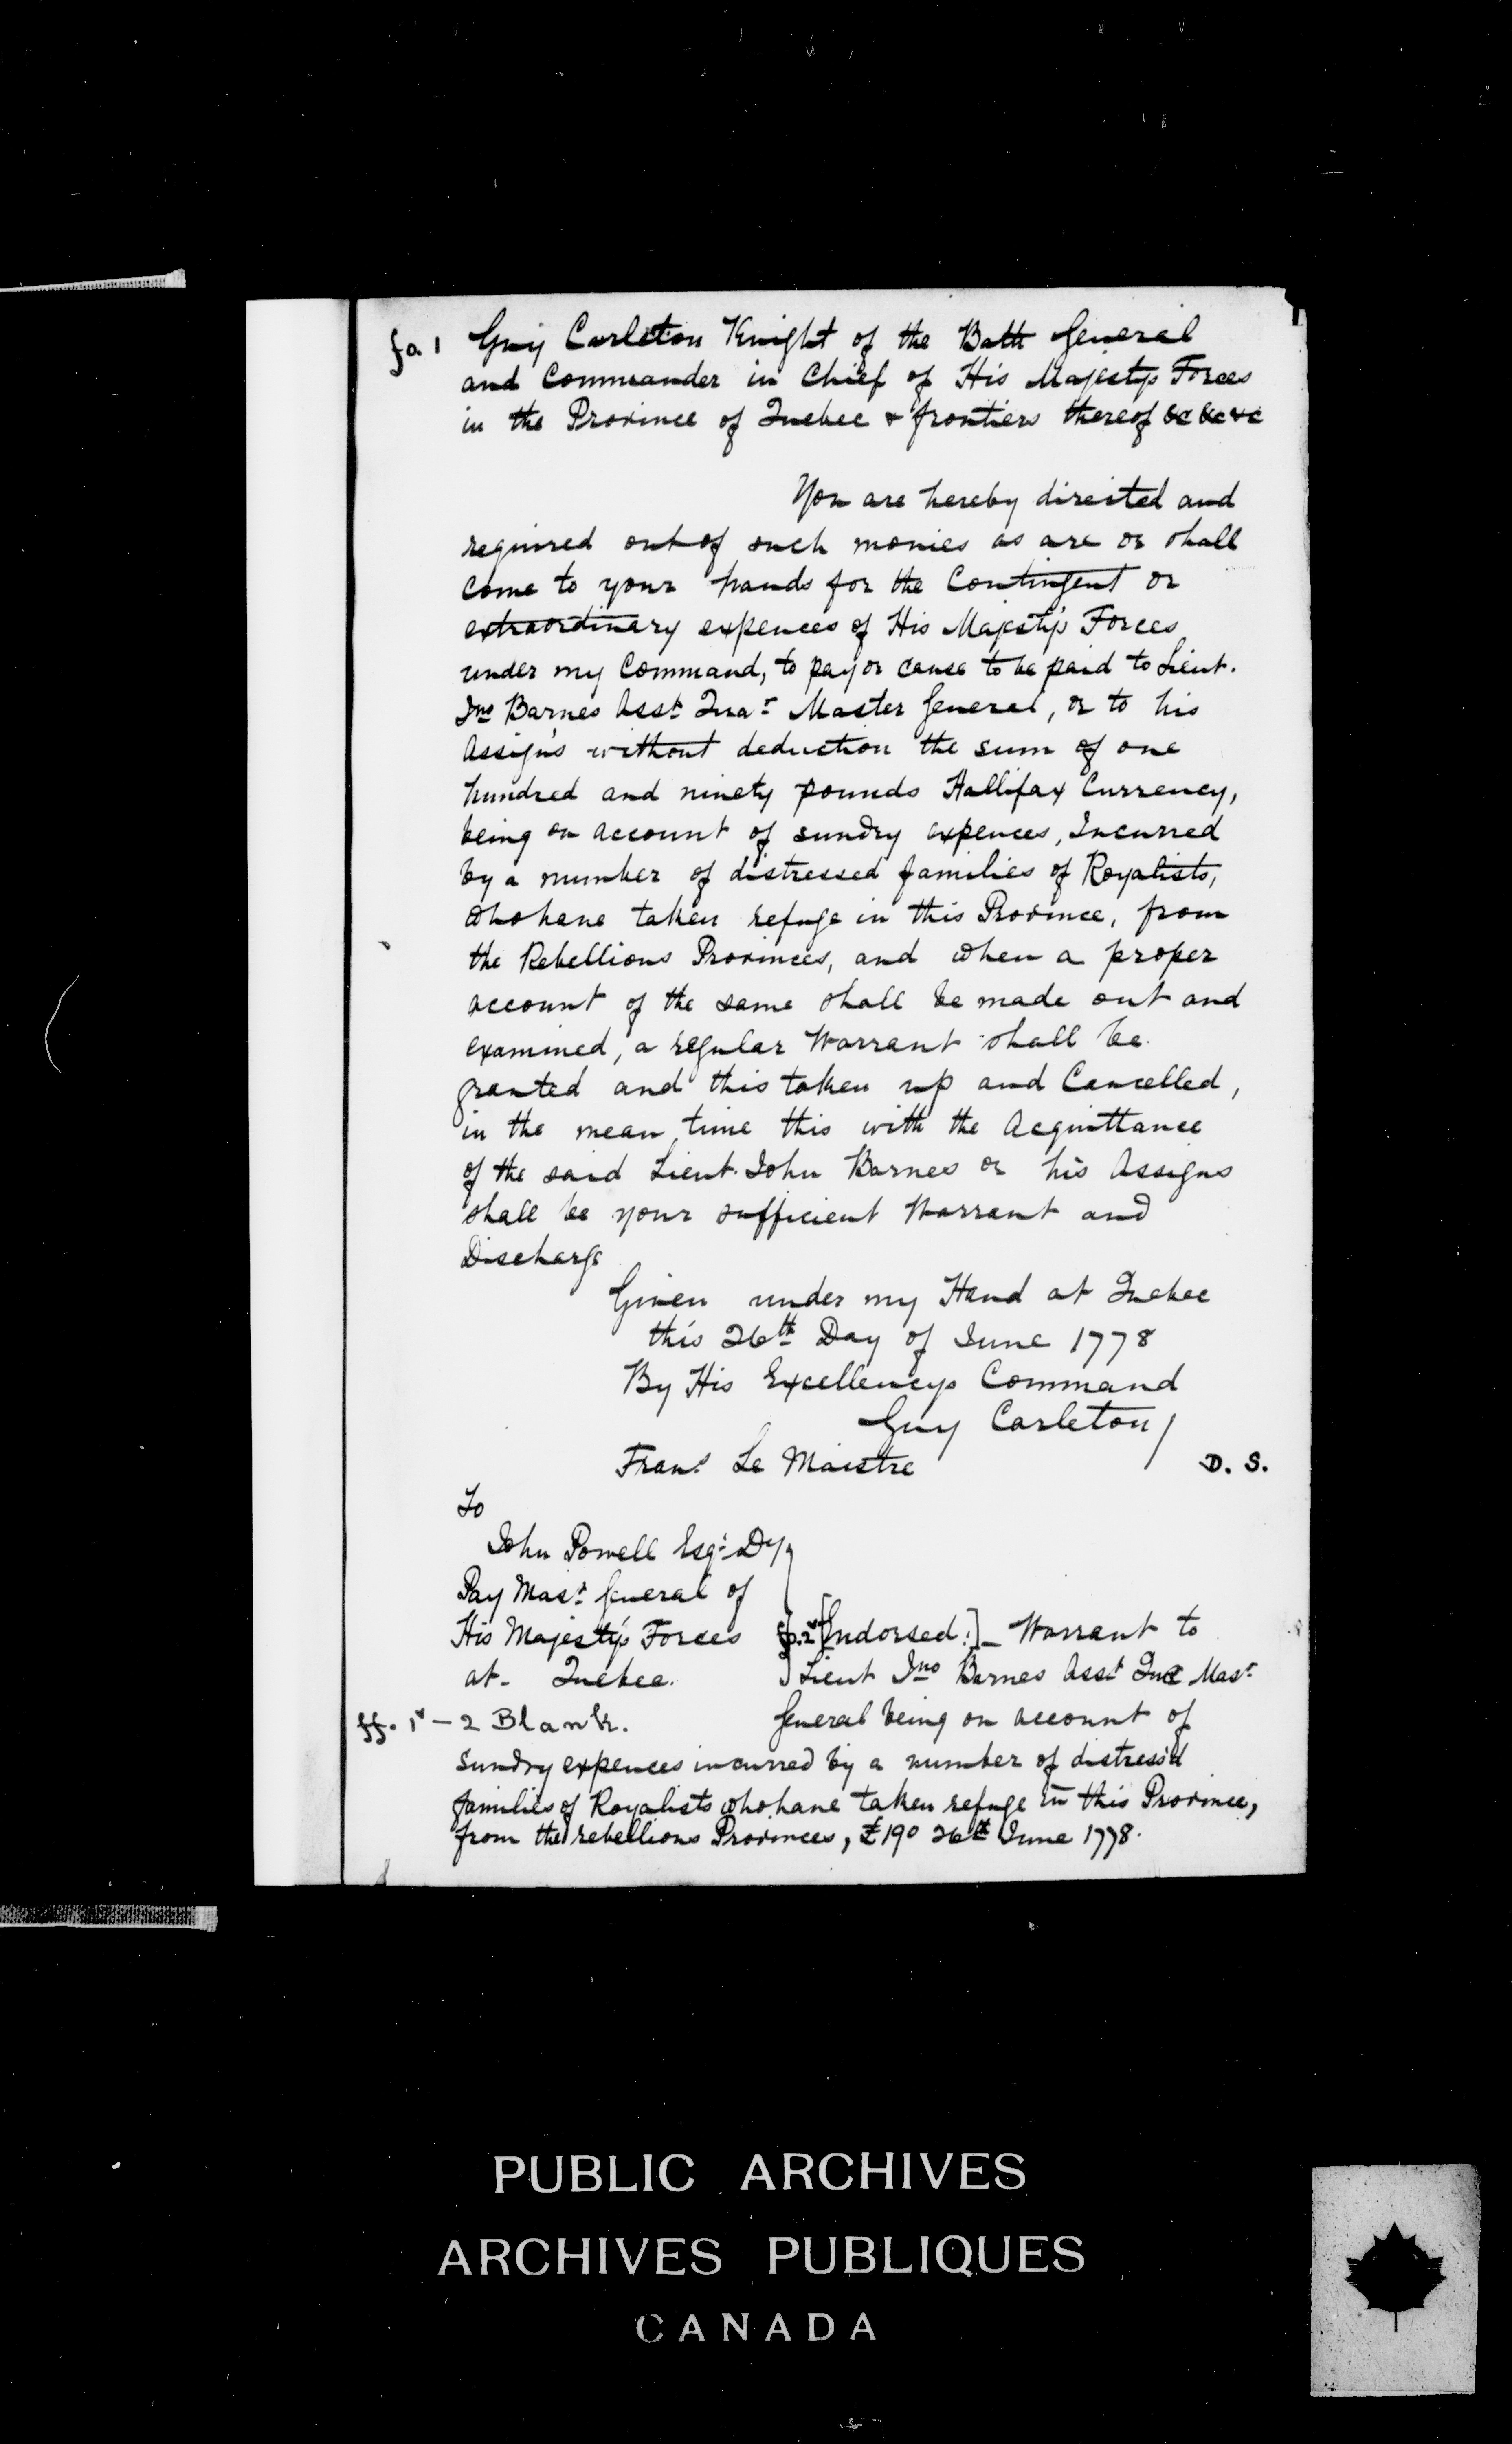 1
fo. 1 Guy Carleton Knight of the Bath General
and Commander in Chief of His Majestys Forces
in the Province of Quebec & frontiers thereof &c &c &c
You are hereby directed and
required out of such monies as are or shall
come to your hands for the Contingent or
extraordinary expences of His Majesty's Forces
under my Command, to pay or cause to be paid to Lieut.
Jno Barnes Asst Quar Master General, or to his
Assigns without deduction the sum of one
hundred and ninety pounds Hallifax Currency,
being on account of sundry expences, Incurred
by a number of distressed families of Royalists,
who have taken refuge in this Province, from
the Rebellious Provinces, and when a proper
account of the same shall be made out and
examined, a regular Warrant shall be
granted and this taken up and Cancelled,
in the mean time this with the Acquittance
of the said Lieut. John Barnes or his Assigns
shall be your sufficient Warrant and
Discharge
Given under my Hand at Quebec
this 26th Day of June 1778
By His Excellencys Command
Guy Carleton
Frans Le Maistre D. S.
To
John Powell Esqr Dy
Pay Mastr General of
His Majesty's Forces
at Quebec.
ff. 1v – 2 Blank.
fo. 2v [Endorsed:] – Warrant to
Lieut Jno Barnes Asst Qua Mastr
General being on account of
sundry expences incurred by a number of distress'd
families of Royalists who have taken refuge in this Province,
from the rebellious Provinces, £190 26th June 1778.
PUBLIC ARCHIVES
ARCHIVES PUBLIQUES
CANADA